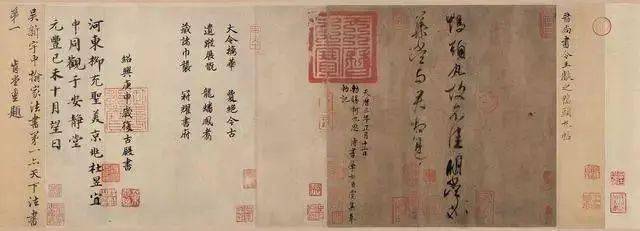 晉尚書令王獻之鴨頭丸帖
鴨頭丸故不佳明當必
集當與君相見
天曆三年正月十二日
敕賜柯九思 侍書學士臣虞集奉
敕記
大令摛華 夐絕今古
遺蹤展翫 龍蟠鳳翥
藏諸巾襲 冠耀書府
紹興庚申歲復古殿書
河東柳充聖美京兆杜昱宜
中同觀于安靜堂
元豐己未十月望日
吳新宇中捴家法書第一亦天下法書
第一 肯堂重題